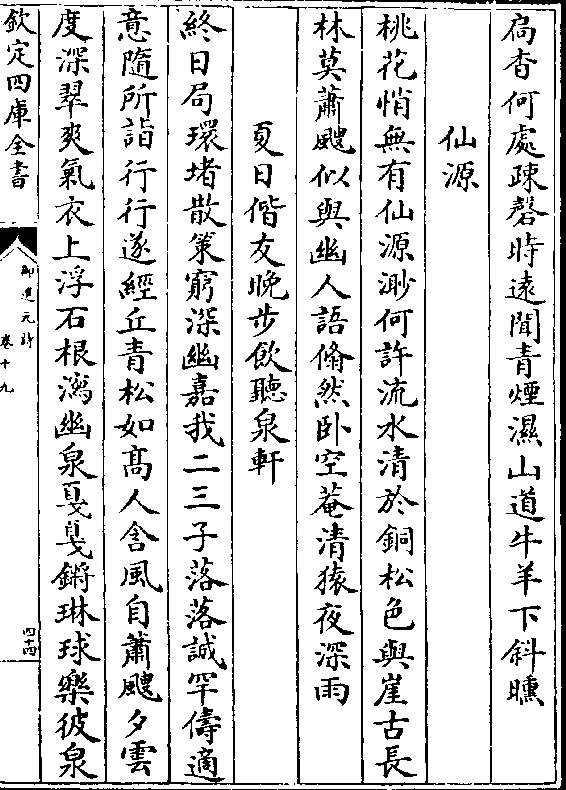 扃杳何處疎磬時遠聞青煙濕山道牛羊下斜曛
仙源
桃花悄無有仙源渺何許流水清於銅松色與崖古長
林莫蕭颼似與幽人語翛然卧空菴清猿夜深雨
夏日偕友晚步飲聽泉軒
終日局環堵散策窮深幽嘉我二三子落落誠罕儔適
意隨所詣行行遂經丘青松如髙人含風自蕭颼夕雲
度深翠爽氣衣上浮石根瀉幽泉戛戛鏘琳球樂彼泉
欽定四庫全書
御選元詩
卷十九
四十四